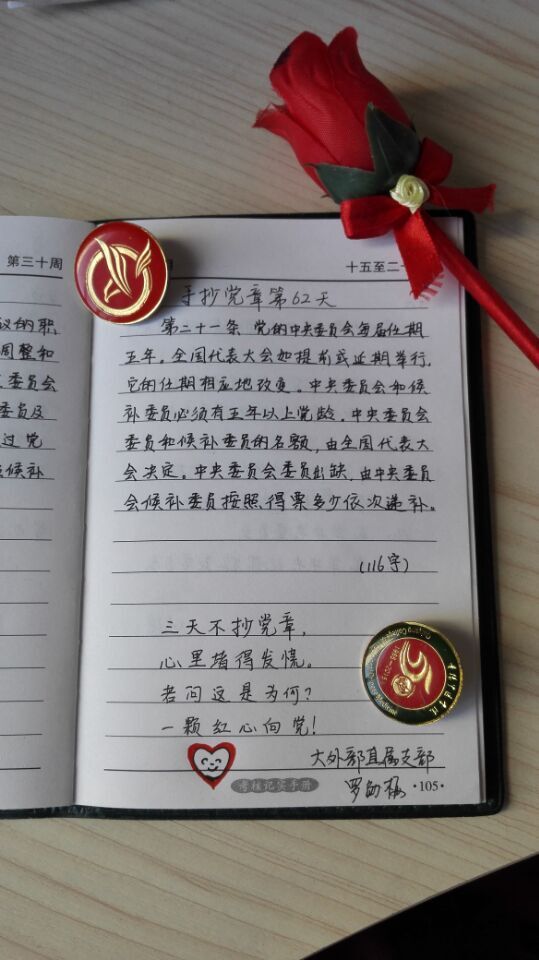 第三十周
议的职
调整和
委员会
委员及
过党
候补
十五至二十
手抄党章第62天
第二十一条 党的中央委员会每届任期
五年。全国代表大会如提前或延期举行，
它的任期相应地改变。中央委员会和候
补委员必须有五年以上党龄。中央委员会
委员和候补委员的名额，由全国代表大
会决定。中央委员会委员出缺，由中央委员
会候补委员按照得票多少依次递补。
(116字)
三天不抄党章，
心里堵得发慌。
若问这是为何？
一颗红心向党！
大外部直属支部
·105·